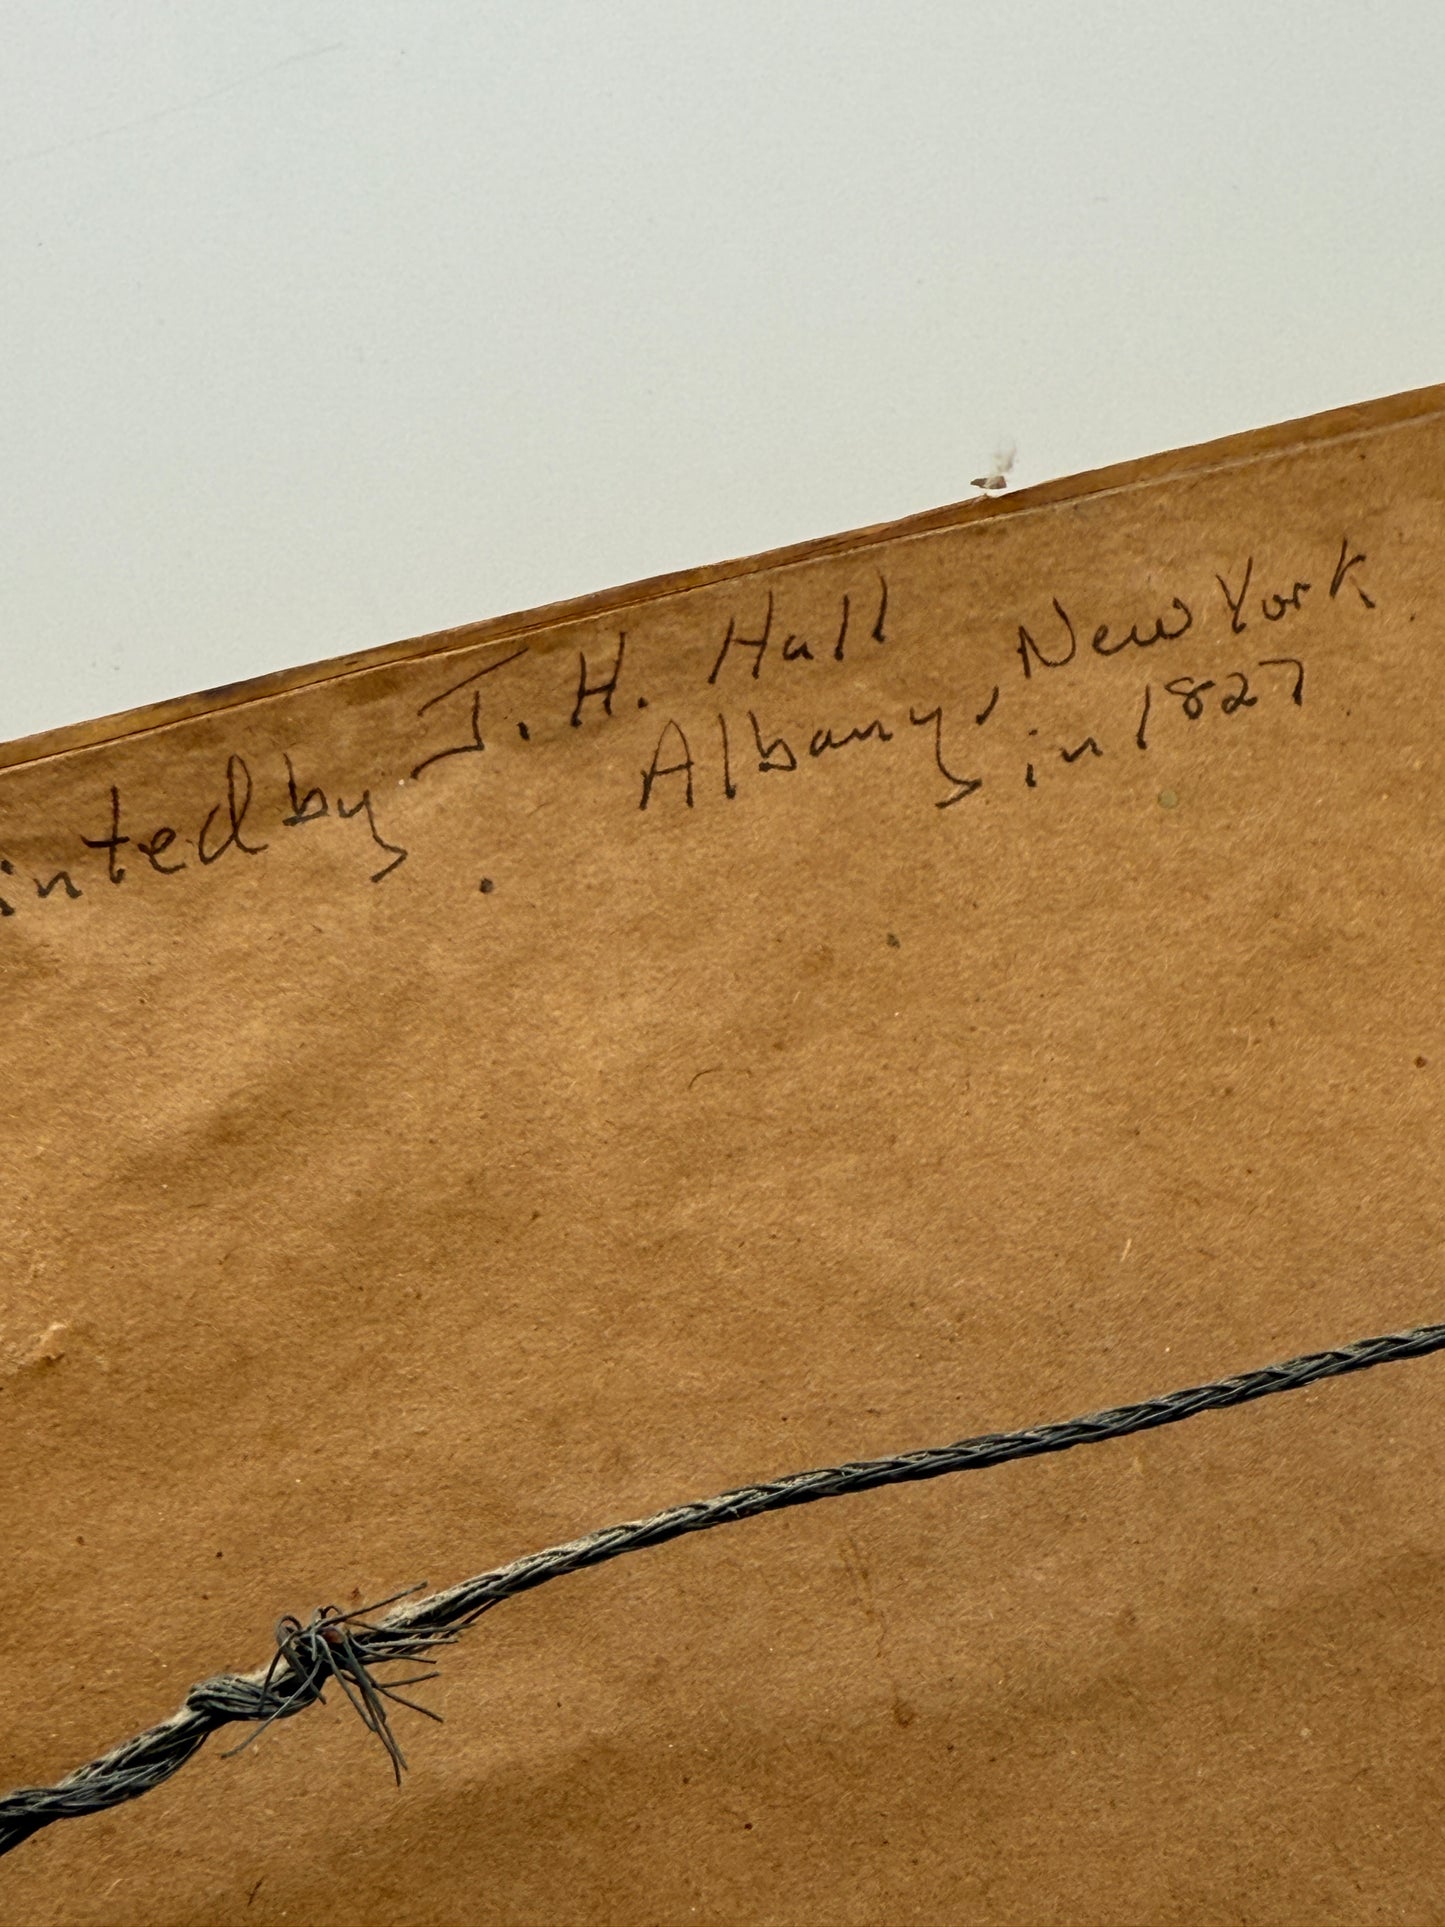 inted by J. H. Hall
Albany, New York
in 1827